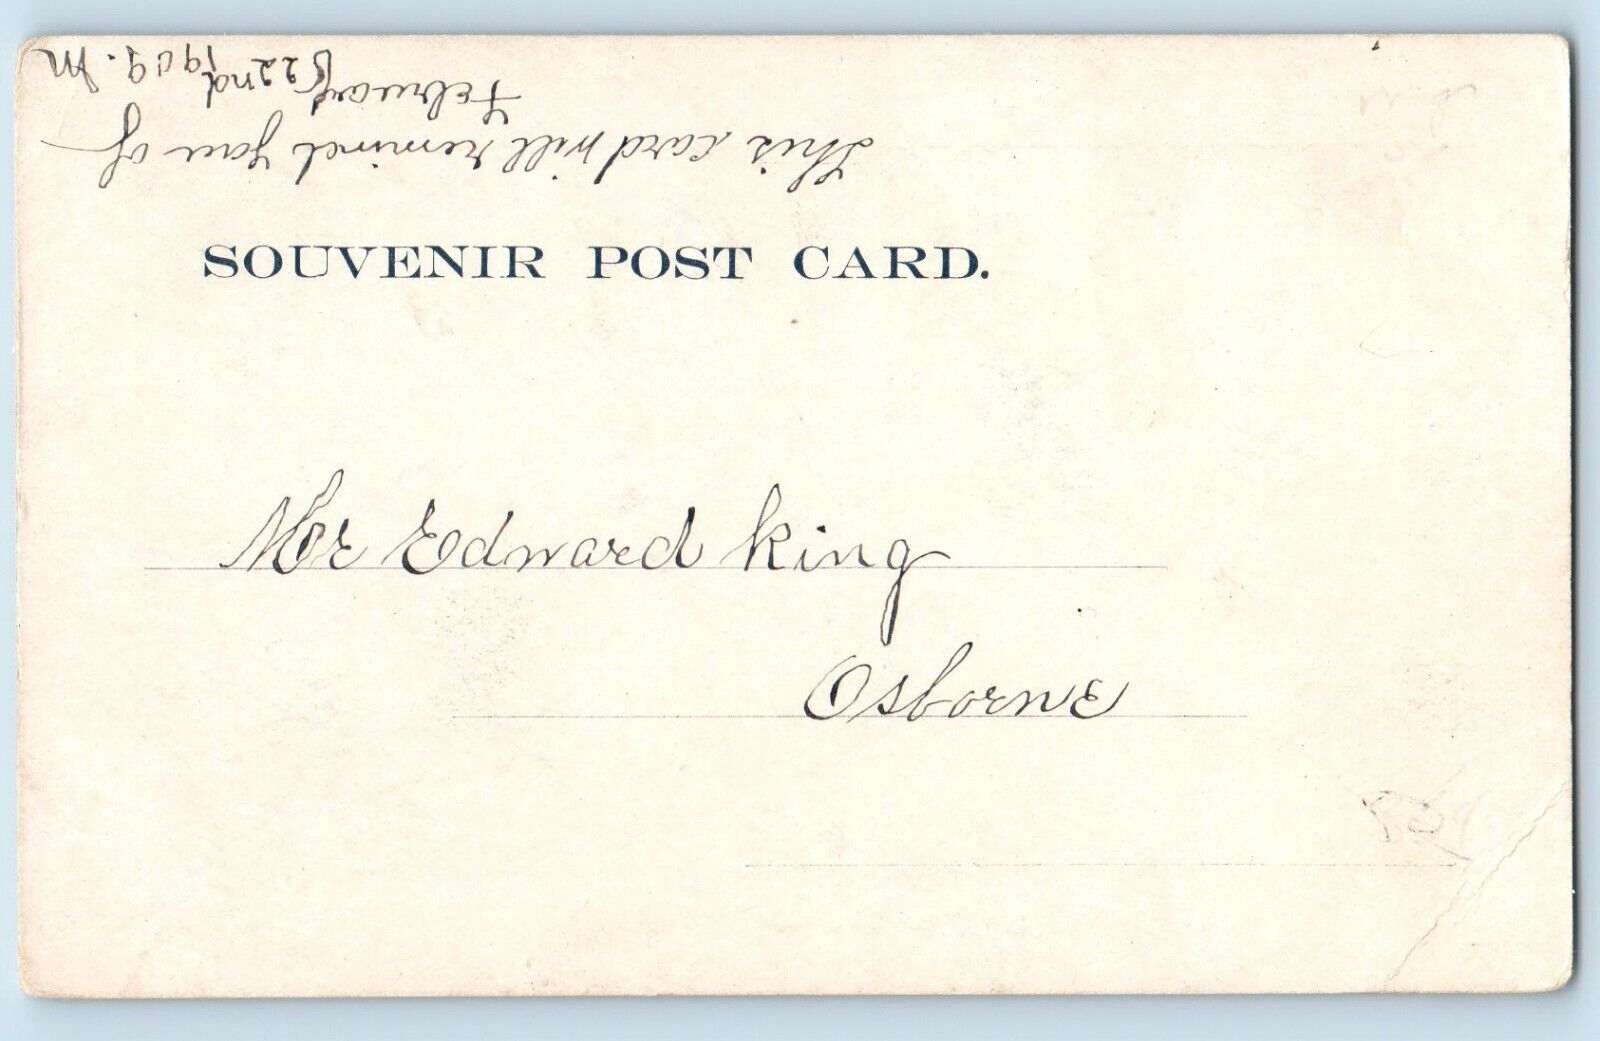 This card will remind you of
February 22nd
1909. M
SOUVENIR POST CARD.
Mr Edward King
Osborne